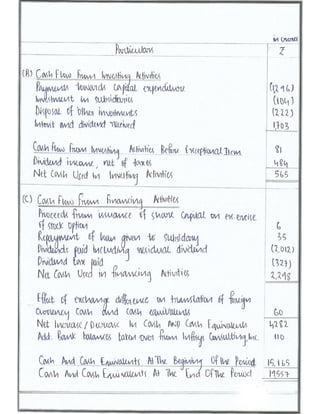 in crores
Particulars ₹
(B) Cash Flow From Investing Activities
Payments towards Capital expenditure (1296)
Investment in subsidiaries (104)
Disposal of other investments (222)
Interest and dividend received 1703
Cash Flow From Investing Activities Before Exceptional Item 81
Dividend income, net of taxes 484
Net Cash Used in Investing Activities 565
(C) Cash Flow From Financing Activities
Proceeds from issuance of share Capital on exercise
of stock option 6
Repayment of loan given to subsidiary 35
Dividends paid Including residual dividend (2,012)
Dividend tax paid (327)
Net Cash Used in financing Activities 2,298
Effect of exchange difference on translation of foreign
currency Cash and cash equivalents 60
Net Increase/Decrease In Cash AND Cash Equivalents 4282
Add: Bank balances taken over from Infosys Consulting Inc. 110
Cash And Cash Equivalents At The Beginning Of the Period 15,165
Cash And Cash Equivalents At The End Of The Period 19557